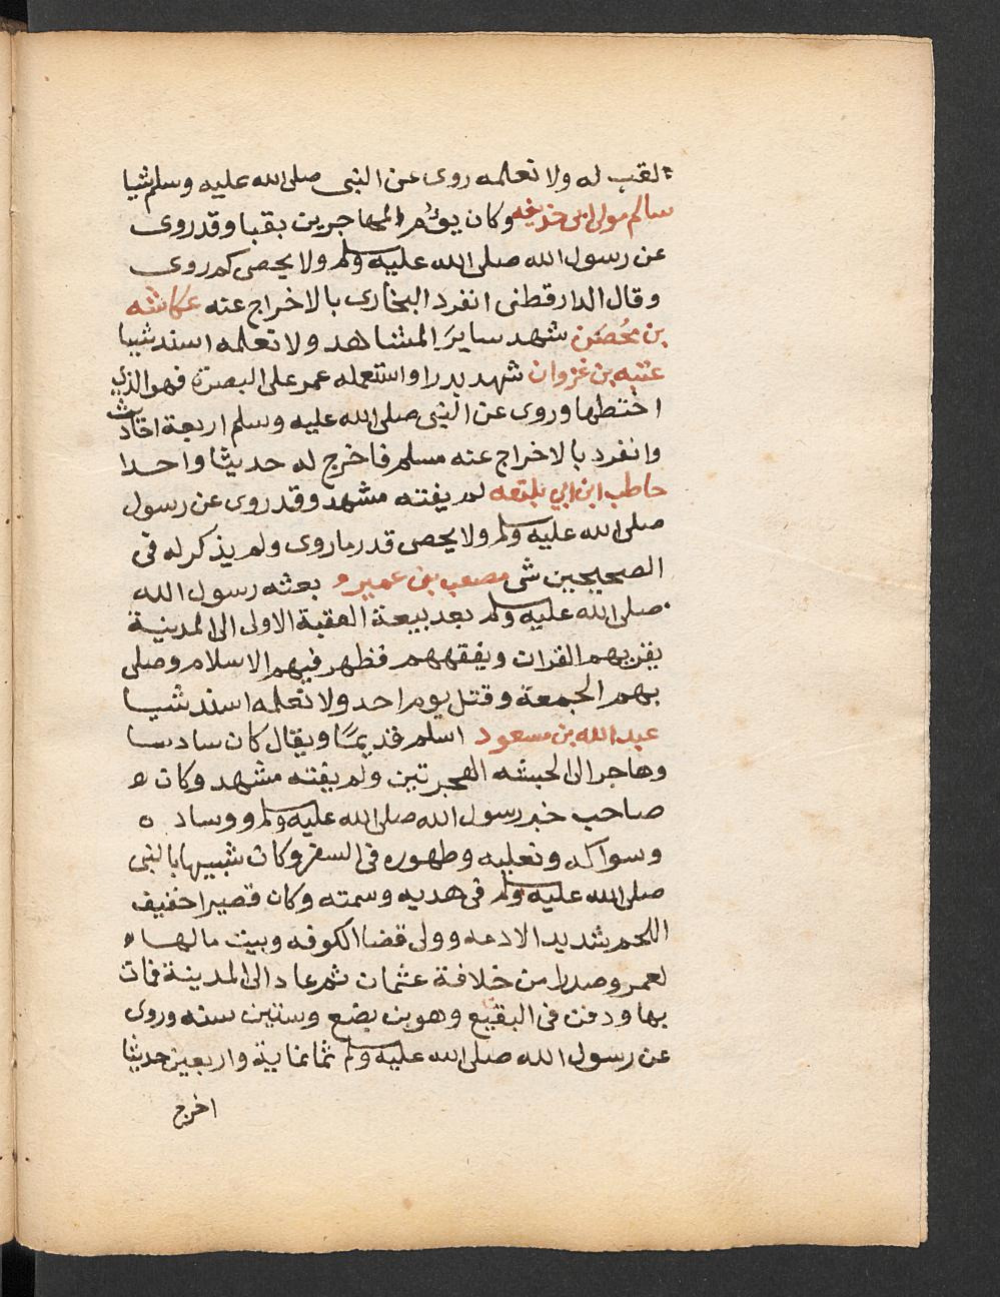 لقب له ولا نعلمه روى عن النبى صلى الله عليه وسلم شيا
سالم مولى ابى حذيفه وكان يؤم المهاجرين بقبا وقد روى
عن رسول الله صلى الله عليه وسلم ولا يحصى كم روى
وقال الدارقطنى انفرد البخارى بالاخراج عنه عكاشه
بن محُصَن شهد سايرَ المشاهد ولا نعلمه اسند شييا
عتبه بن غزوان شهد بدرا واستعمله عمر على البصرة فهو الذي
اختطها وروى عن النبى صلى الله عليه وسلم اربعة احاديث
وانفرد بالاخراج عنه مسلم فاخرج له حديثا واحدا
حاطب ابن ابي بلتعه لم يفته مشهد وقد روى عن رسول
صلى الله عليه وسلم ولا يحصى قدر ما روى ولم يذكر له فى
الصحيحين شى مصعب بن عمير بعثه رسول الله
صلى الله عليه وسلم بعد بيعة العقبة الاولى الى المدينة
يقريهم القران ويفقههم فظهر فيهم الاسلام وصلى
بهم الجمعة وقتل يوم احد ولا نعلمه اسند شيا
عبد الله بن مسعود اسلم قديمًا ويقال كان سادسا
وهاجر الى الحبشه الهجرتين ولم يفته مشهد وكان ه
صاحب خبر رسول الله صلى الله عليه وسلم ووساد ه
وسواكه ونعليه وطهوره فى السفر وكان شبيها بالنبى
صلى الله عليه وسلم فى هديه وسمته وكان قصيرا خفيف
اللحم شديد الادمه وولى قضا الكوفه وبيت مالها ه
لعمر وصدرا من خلافة عثمان ثم عاد الى المدينة فمات
بها ودفن فى البقيع وهو بن بضع وستين سنه وروى
عن رسول الله صلى الله عليه وسلم ثمانماية واربعين حديثا
اخرج